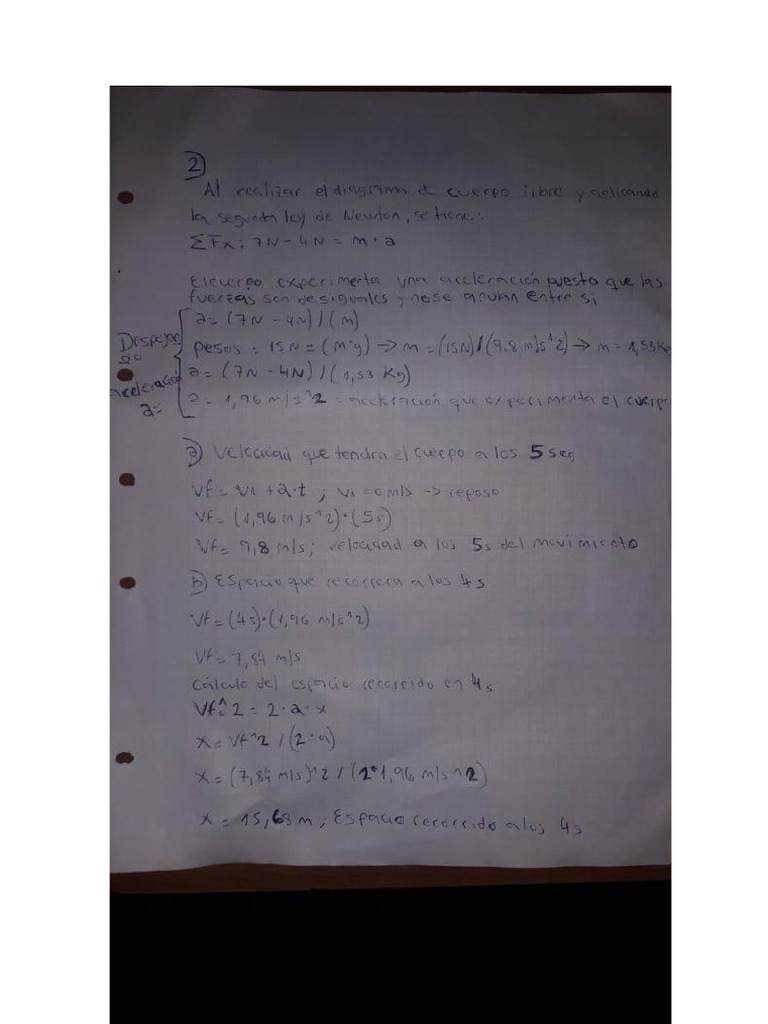 2)
Al realizar el diagrama de cuerpo libre y aplicando
la segunda ley de Newton, se tiene:
ΣFx: 7N - 4N = m·a
El cuerpo experimenta una aceleración puesto que las
fuerzas son desiguales y no se anulan entre si
Despejando aceleración a=
a = (7N - 4N) / (m)
pesos: 15N = (m·g) → m = (15N) / (9.8 m/s^2) → m = 1,53 Kg
a = (7N - 4N) / (1,53 Kg)
a = 1,96 m/s^2: aceleración que experimenta el cuerpo
a) Velocidad que tendra el cuerpo a los 5 seg
Vf = Vi + a·t ; Vi = 0 m/s → reposo
Vf = (1,96 m/s^2)·(5s)
Vf = 9,8 m/s; velocidad a los 5s del movimiento
b) Espacio que recorrera a los 4s
Vf = (4s)·(1,96 m/s^2)
Vf = 7,84 m/s
Cálculo del espacio recorrido en 4s
Vf^2 = 2·a·x
x = Vf^2 / (2·a)
x = (7,84 m/s)^2 / (2·1,96 m/s^2)
x = 15,68 m; Espacio recorrido a los 4s